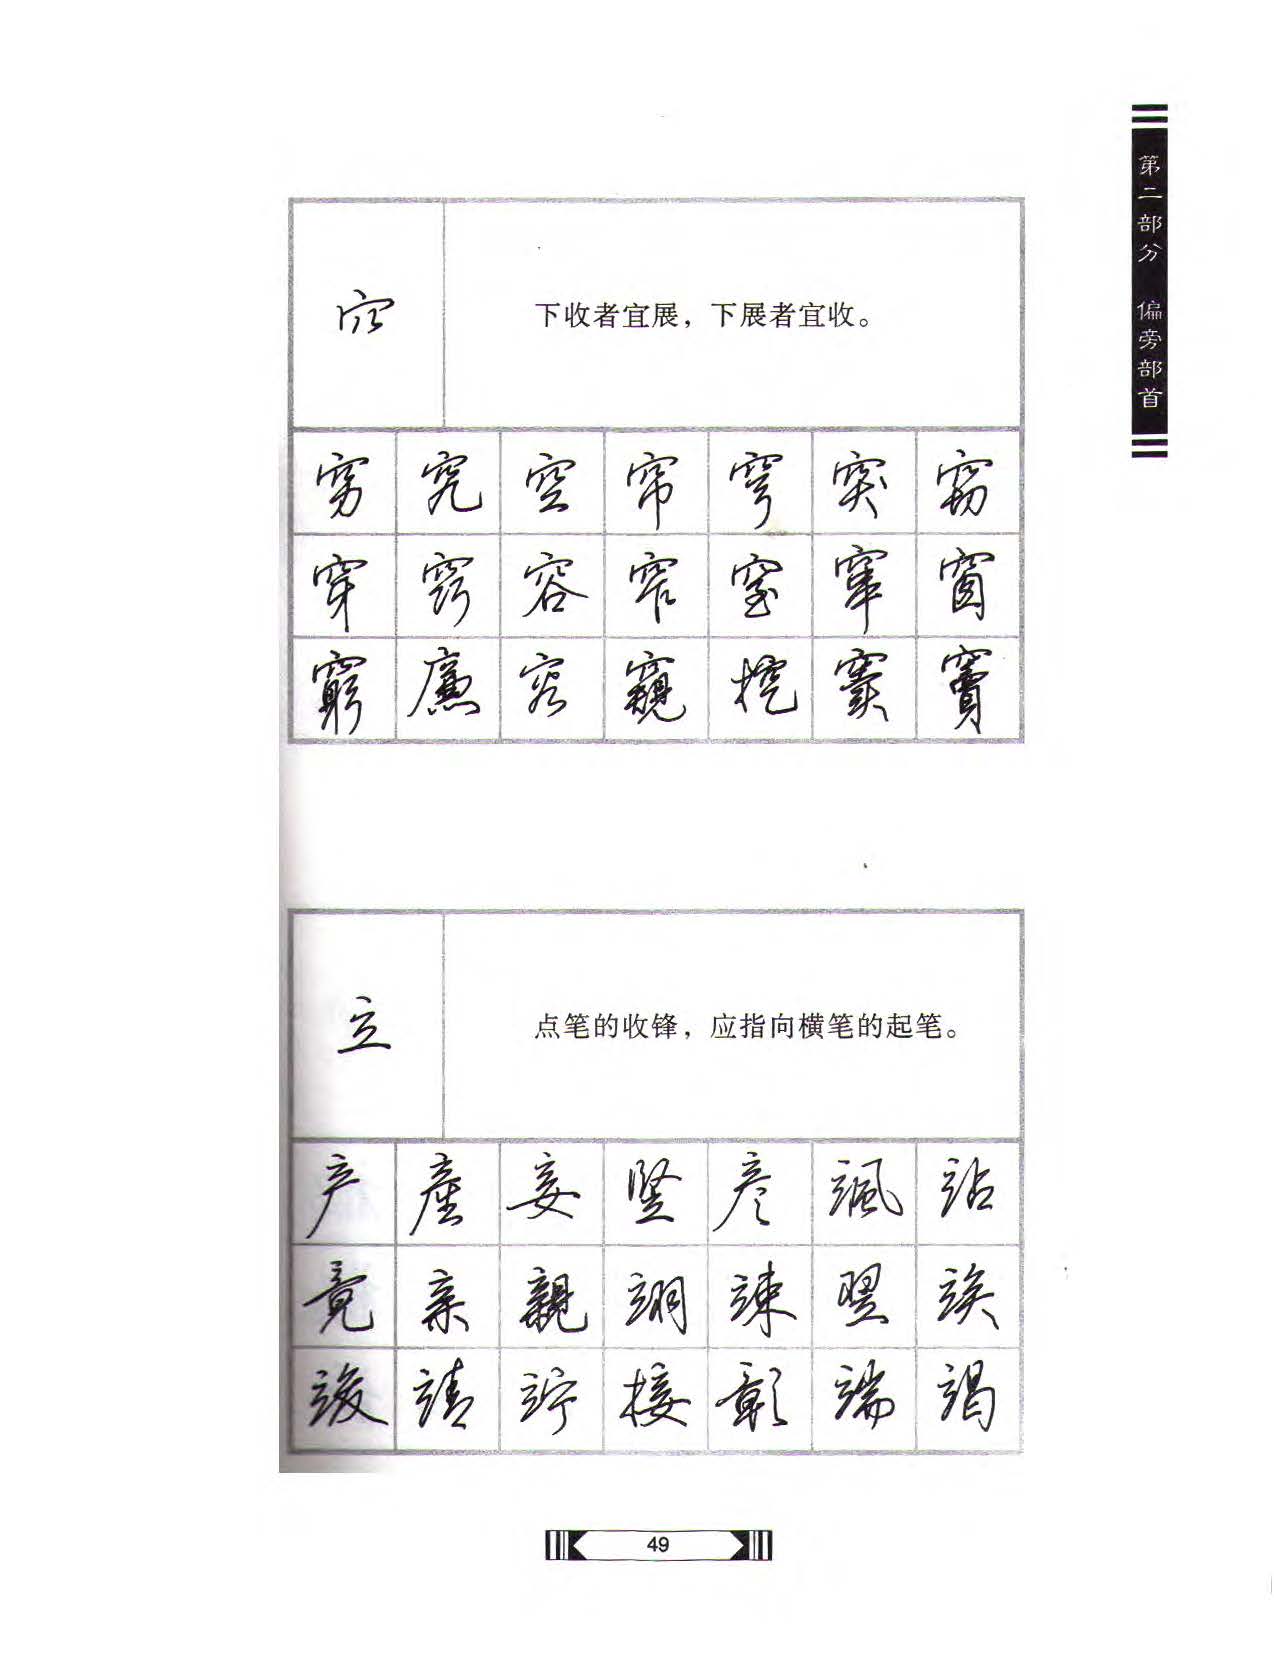 第二部分 偏旁部首
穴
下收者宜展，下展者宜收。
穷 究 空 帘 穹 突 窃
穿 窍 容 窄 窒 窗
窮 廉 窺 挖 窦 竇
立
点笔的收锋，应指向横笔的起笔。
产 產 妾 竖 彦 颯 站
竟 亲 親 翊 竦 翌 竢
竣 靖 竚 接 彰 端 竭
49